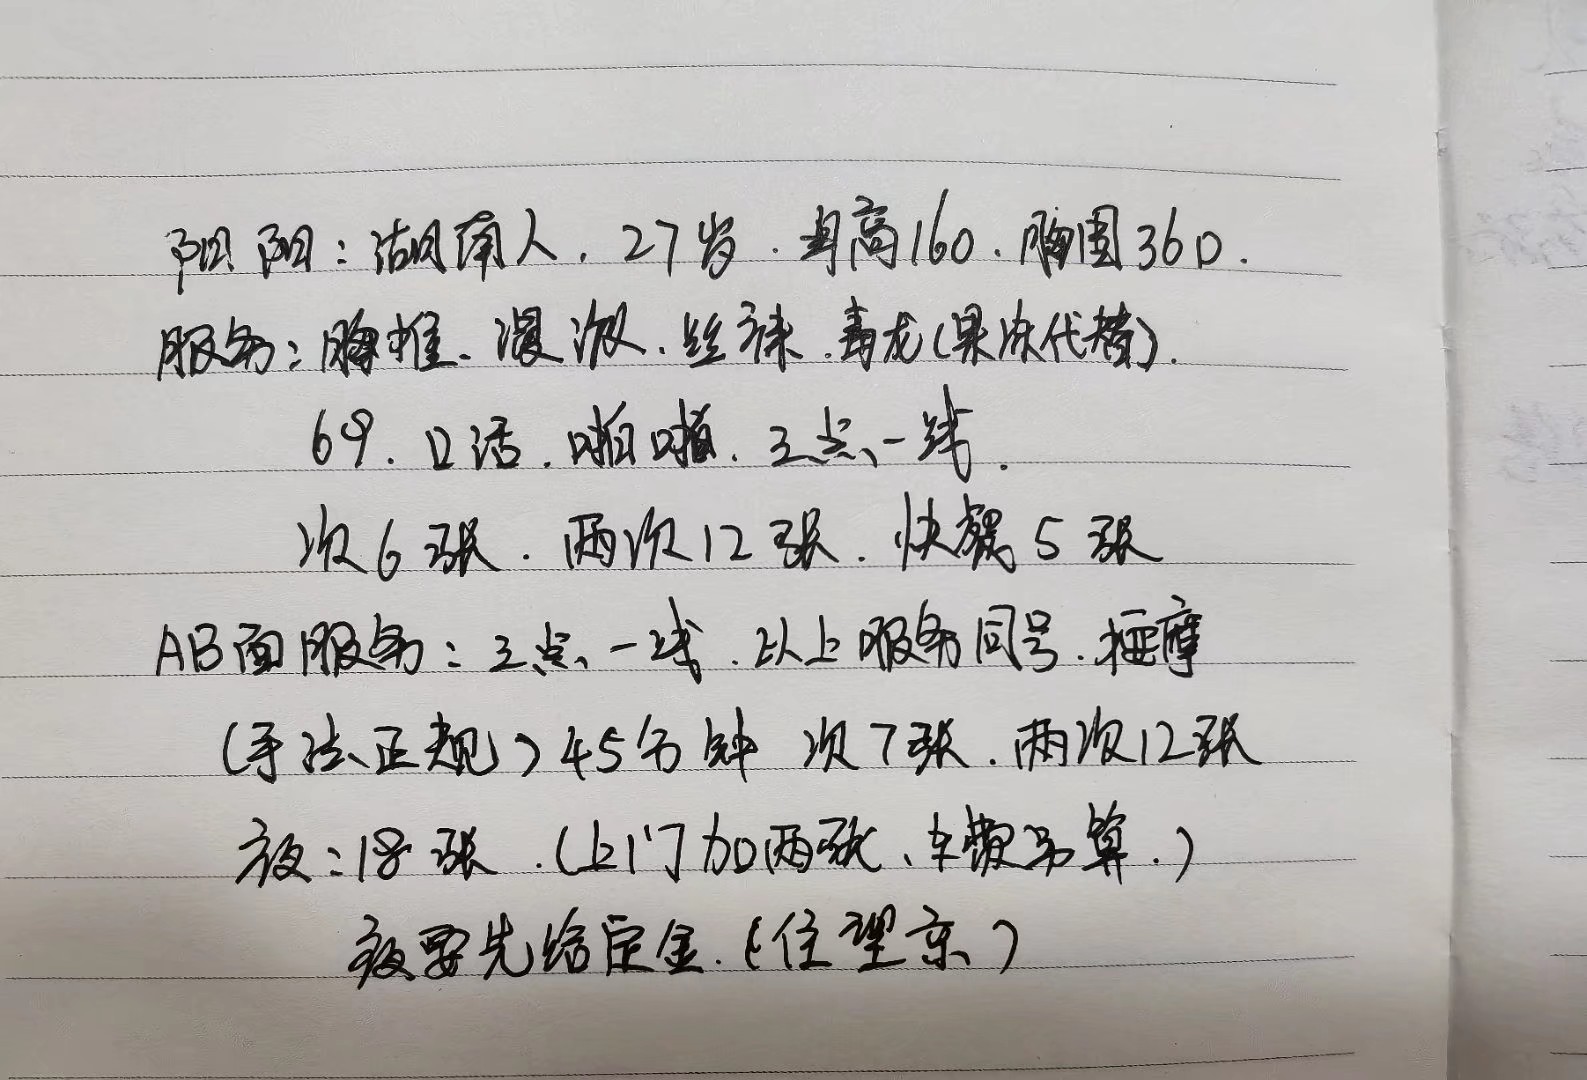 阳阳：湖南人．27岁．身高160．胸围36D．
服务：胸推、漫游．丝袜．毒龙（果冻代替）．
69．口活．啪啪．三点一线．
次6张．两次12张．快餐5张
AB面服务：三点一线．以上服务同号．按摩
（手法正规）45分钟 次7张．两次12张
夜：18张．（上门加两张、车费另算．）
夜要先给定金．（住望京）